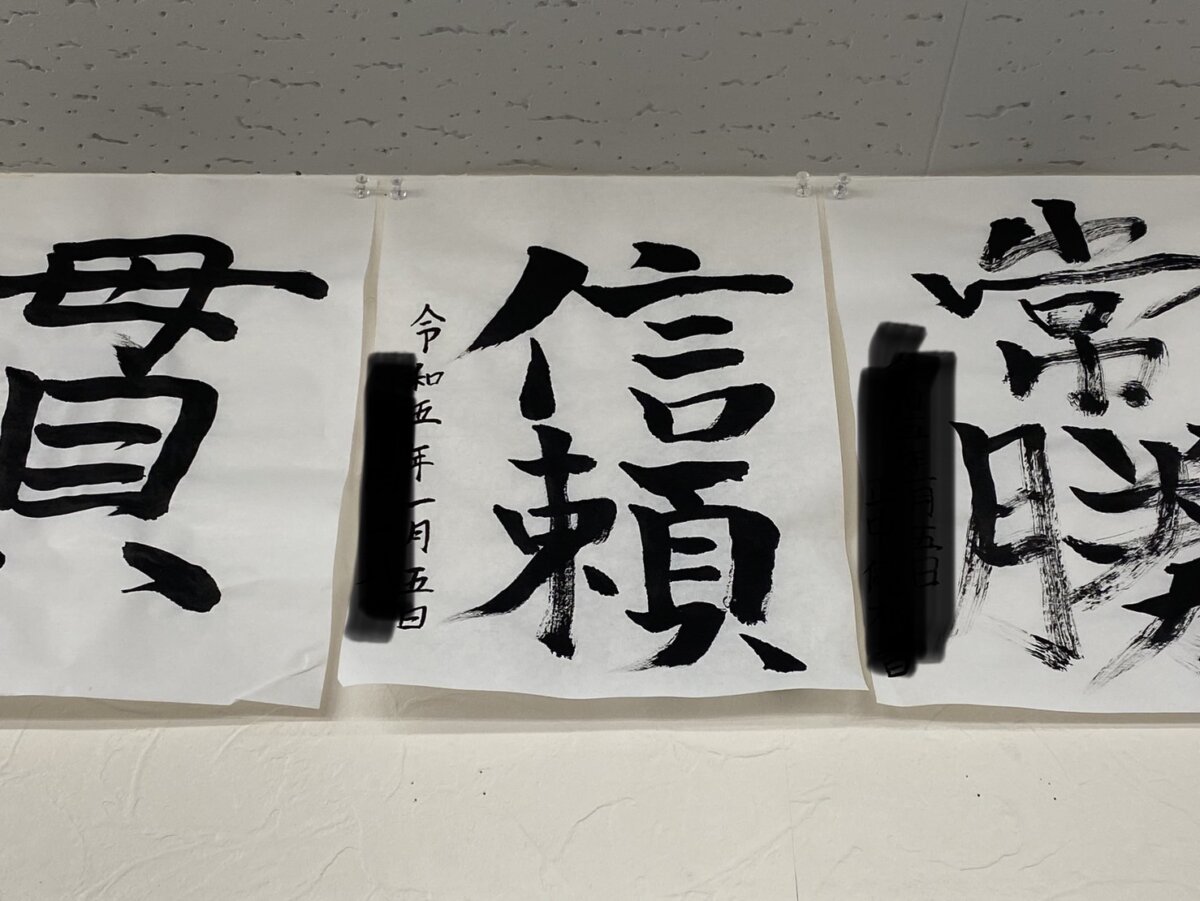 常勝
信頼
令和五年一月五日
貫